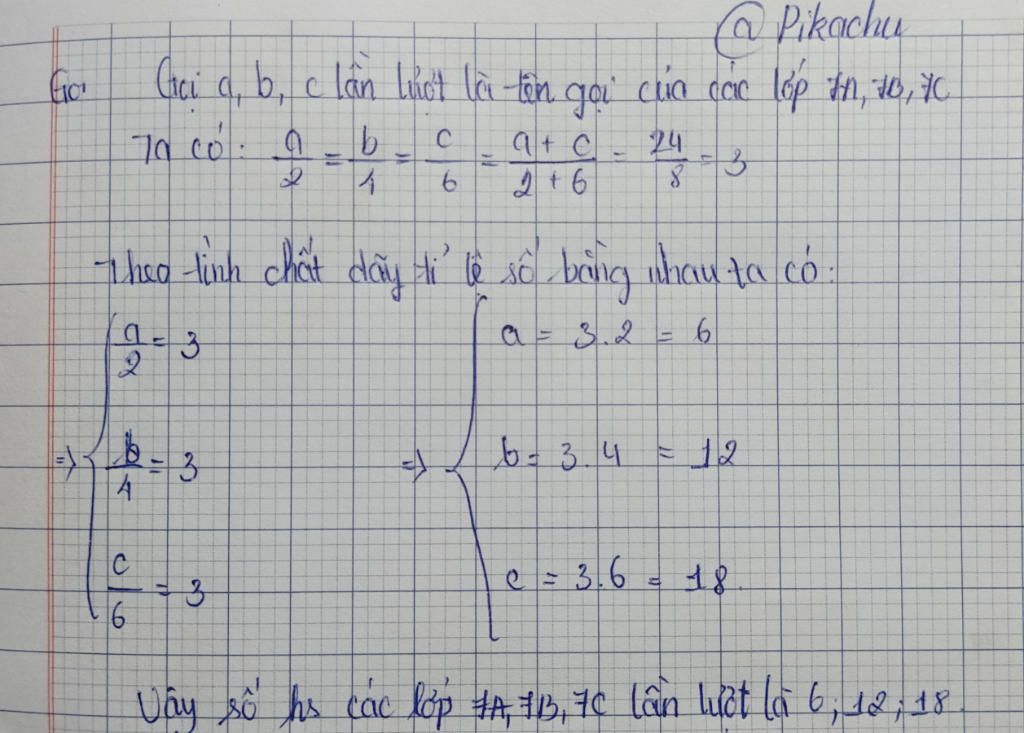 @ Pikachu
Giải Gọi a, b, c lần lượt là tên gọi của các lớp 7A, 7B, 7C
Ta có: a/2 = b/4 = c/6 = (a + c)/(2 + 6) = 24/8 = 3
Theo tình chất dãy tỉ lệ số bằng nhau ta có:
a/2 = 3 a = 3.2 = 6
=> b/4 = 3 => b = 3.4 = 12
c/6 = 3 c = 3.6 = 18.
Vậy số hs các lớp 7A, 7B, 7C lần lượt là 6; 12; 18.